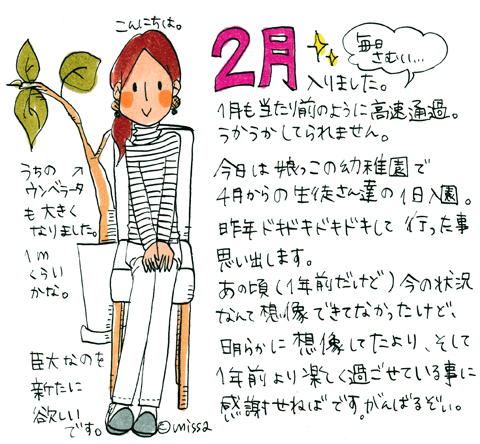 こんにちは。
2月
毎日
さむい…
入りました。
1月も当たり前のように高速通過。
うかうかしてられません。
今日は娘っこの幼稚園で
4月からの生徒さん達の1日入園。
昨年ドキドキドキドキして行った事
思い出します。
あの頃(1年前だけど)今の状況
なんて想像できてなかったけど、
明らかに想像してたより、そして
1年前より楽しく過ごせている事に
感謝せねばです。がんばるぞい。
うちの
ウンベラータ
も大きく
なりました。
1m
くらい
かな。
巨大なのを
新たに
欲しい
です。
©missa